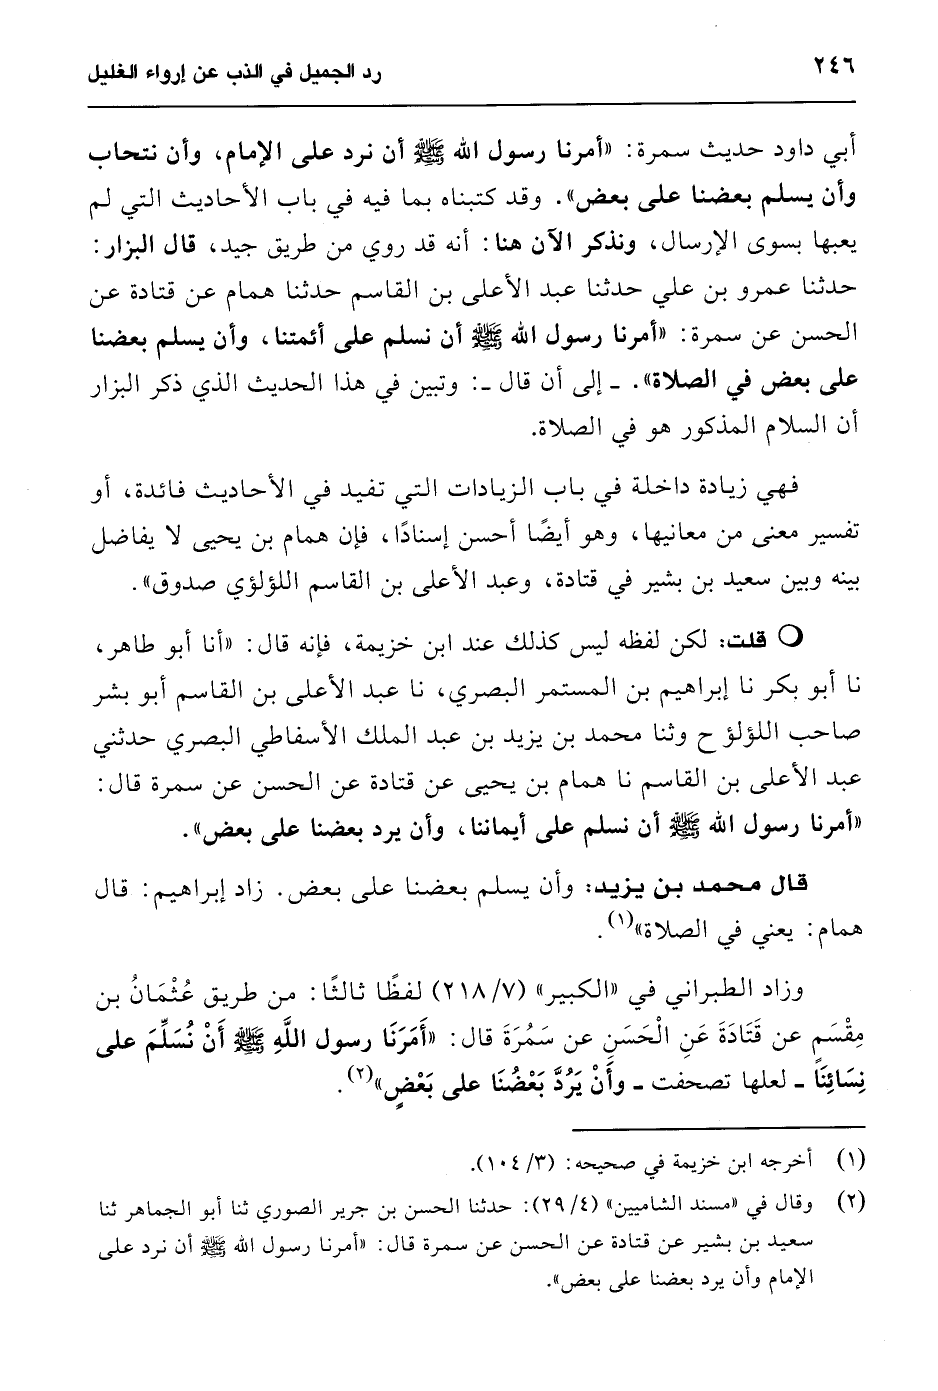 ٢٤٦
رد الجميل في الذب عن إرواء الغليل
أبي داود حديث سمرة: «أمرنا رسول الله ﷺ أن نرد على الإمام، وأن نتحاب
وأن يسلم بعضنا على بعض». وقد كتبناه بما فيه في باب الأحاديث التي لم
يعبها بسوى الإرسال، ونذكر الآن هنا: أنه قد روي من طريق جيد، قال البزار:
حدثنا عمرو بن علي حدثنا عبد الأعلى بن القاسم حدثنا همام عن قتادة عن
الحسن عن سمرة: «أمرنا رسول الله ﷺ أن نسلم على أئمتنا، وأن يسلم بعضنا
على بعض في الصلاة». ـ إلى أن قال ـ: وتبين في هذا الحديث الذي ذكر البزار
أن السلام المذكور هو في الصلاة.
فهي زيادة داخلة في باب الزيادات التي تفيد في الأحاديث فائدة، أو
تفسير معنى من معانيها، وهو أيضًا أحسن إسنادًا، فإن همام بن يحيى لا يفاضل
بينه وبين سعيد بن بشير في قتادة، وعبد الأعلى بن القاسم اللؤلؤي صدوق».
❍ قلت: لكن لفظه ليس كذلك عند ابن خزيمة، فإنه قال: «أنا أبو طاهر،
نا أبو بكر نا إبراهيم بن المستمر البصري، نا عبد الأعلى بن القاسم أبو بشر
صاحب اللؤلؤ ح وثنا محمد بن يزيد بن عبد الملك الأسفاطي البصري حدثني
عبد الأعلى بن القاسم نا همام بن يحيى عن قتادة عن الحسن عن سمرة قال:
«أمرنا رسول الله ﷺ أن نسلم على أيماننا، وأن يرد بعضنا على بعض».
قال محمد بن يزيد: وأن يسلم بعضنا على بعض. زاد إبراهيم: قال
همام: يعني في الصلاة»(١).
وزاد الطبراني في «الكبير» (٢١٨/٧) لفظًا ثالثًا: من طريق عُثْمَانُ بن
مِقْسَمٍ عن قَتَادَةَ عَنِ الْحَسَنِ عن سَمُرَةَ قال: «أَمَرَنَا رسول اللَّهِ ﷺ أَنْ نُسَلِّمَ على
نِسَائِنَاً ـ لعلها تصحفت ـ وأَنْ يَرُدَّ بَعْضُنَا على بَعْضٍ»(٢).
(١) أخرجه ابن خزيمة في صحيحه: (١٠٤/٣).
(٢) وقال في «مسند الشاميين» (٢٩/٤): حدثنا الحسن بن جرير الصوري ثنا أبو الجماهر ثنا
سعيد بن بشير عن قتادة عن الحسن عن سمرة قال: «أمرنا رسول الله ﷺ أن نرد على
الإمام وأن يرد بعضنا على بعض».